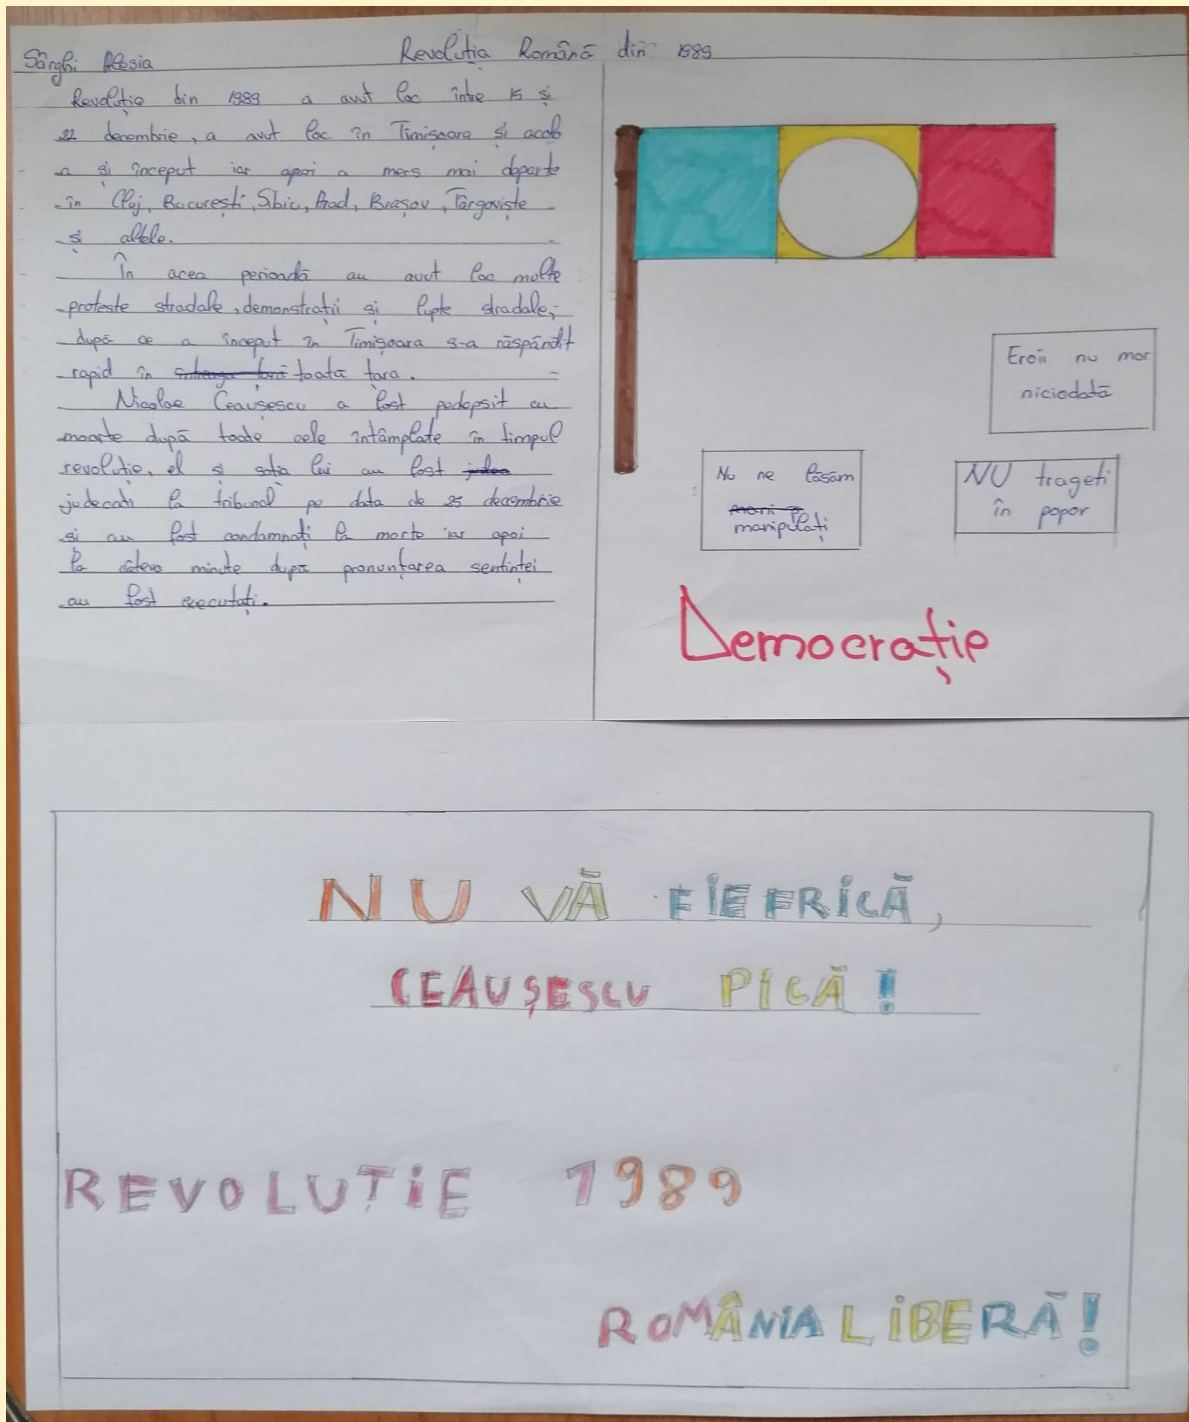 Sârghi Alesia
Revoluția Română din 1989
Revoluție din 1989 a avut loc între 15 și
22 decembrie, a avut loc în Timișoara și acolo
a și început iar apoi a mers mai departe
în Cluj, București, Sibiu, Arad, Brașov, Târgoviște
și altele.
În acea perioadă au avut loc multe
proteste stradale, demonstrații și lupte stradale,
după ce a început în Timișoara s-a răspândit
rapid în toată țara.
Nicolae Ceaușescu a fost pedepsit cu
moarte după toate cele întâmplate în timpul
revoluție, el și soția lui au fost
judecați la tribunal pe data de 25 decembrie
și au fost condamnați la morte iar apoi
la câteva minute după pronunțarea sentinței
au fost executați.
Eroii nu mor
niciodată
Nu ne lăsăm
manipulați
NU trageti
în popor
Democrație
NU VĂ FIE FRICĂ,
CEAUȘESCU PICĂ!
REVOLUȚIE 1989
ROMÂNIA LIBERĂ!